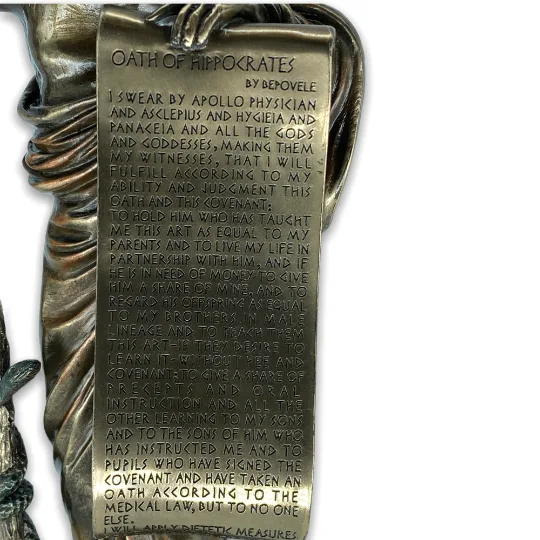 OATH OF HIPPOCRATES
BY BEPOVELE
I SWEAR BY APOLLO PHYSICIAN
AND ASCLEPIUS AND HYGIEIA AND
PANACEIA AND ALL THE GODS
AND GODDESSES, MAKING THEM
MY WITNESSES, THAT I WILL
FULFILL ACCORDING TO MY
ABILITY AND JUDGMENT THIS
OATH AND THIS COVENANT:
TO HOLD HIM WHO HAS TAUGHT
ME THIS ART AS EQUAL TO MY
PARENTS AND TO LIVE MY LIFE IN
PARTNERSHIP WITH HIM, AND IF
HE IS IN NEED OF MONEY TO GIVE
HIM A SHARE OF MINE, AND TO
REGARD HIS OFFSPRING AS EQUAL
TO MY BROTHERS IN MALE
LINEAGE AND TO TEACH THEM
THIS ART-IF THEY DESIRE TO
LEARN IT-WITHOUT FEE AND
COVENANT: TO GIVE A SHARE OF
PRECEPTS AND ORAL
INSTRUCTION AND ALL THE
OTHER LEARNING TO MY SONS
AND TO THE SONS OF HIM WHO
HAS INSTRUCTED ME AND TO
PUPILS WHO HAVE SIGNED THE
COVENANT AND HAVE TAKEN AN
OATH ACCORDING TO THE
MEDICAL LAW, BUT TO NO ONE
ELSE.
I WILL APPLY DIETETIC MEASURES